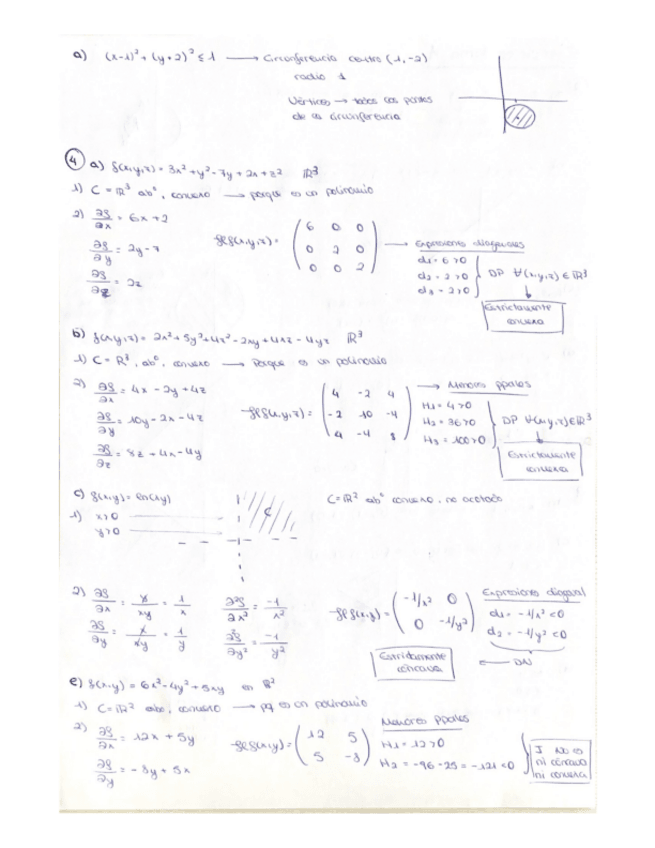 a) (x-1)² + (y+2)² ≤ 1 → Circunferencia centro (1,-2)
radio 1
Vértices → todos los puntos
de la circunferencia
④ a) f(x,y,z) = 3x² + y² - 7y + 2x + z² ℝ³
1) C = ℝ³ abº, convexo → porque es un polinomio
2) ∂f/∂x = 6x + 2
∂f/∂y = 2y - 7
∂f/∂z = 2z
Hf(x,y,z) = ( 6 0 0
0 2 0
0 0 2 )
→ Expresiones diagonales
d₁ = 6 > 0
d₂ = 2 > 0
d₃ = 2 > 0
DP ∀(x,y,z) ∈ ℝ³
Estrictamente
convexa
b) f(x,y,z) = 2x² + 5y² + 4z² - 2xy + 4xz - 4yz ℝ³
1) C = ℝ³, abº, convexo → Porque es un polinomio
2) ∂f/∂x = 4x - 2y + 4z
∂f/∂y = 10y - 2x - 4z
∂f/∂z = 8z + 4x - 4y
Hf(x,y,z) = ( 4 -2 4
-2 10 -4
4 -4 8 )
→ Menores ppales
H₁ = 4 > 0
H₂ = 36 > 0
H₃ = 100 > 0
DP ∀(x,y,z) ∈ ℝ³
Estrictamente
convexa
c) f(x,y) = ln(xy)
1) x > 0
y > 0
C
C = ℝ² abº convexo, no acotado
2) ∂f/∂x = y/xy = 1/x
∂f/∂y = x/xy = 1/y
∂²f/∂x² = -1/x²
∂²f/∂y² = -1/y²
Hf(x,y) = ( -1/x² 0
0 -1/y² )
Expresiones diagonal
d₁ = -1/x² < 0
d₂ = -1/y² < 0
← DN
Estrictamente
cóncava
e) f(x,y) = 6x² - 4y² + 5xy en ℝ²
1) C = ℝ² abº, convexo → pq es un polinomio
2) ∂f/∂x = 12x + 5y
∂f/∂y = -8y + 5x
Hf(x,y) = ( 12 5
5 -8 )
Menores ppales
H₁ = 12 > 0
H₂ = -96 - 25 = -121 < 0
I No es
ni cóncava
ni convexa